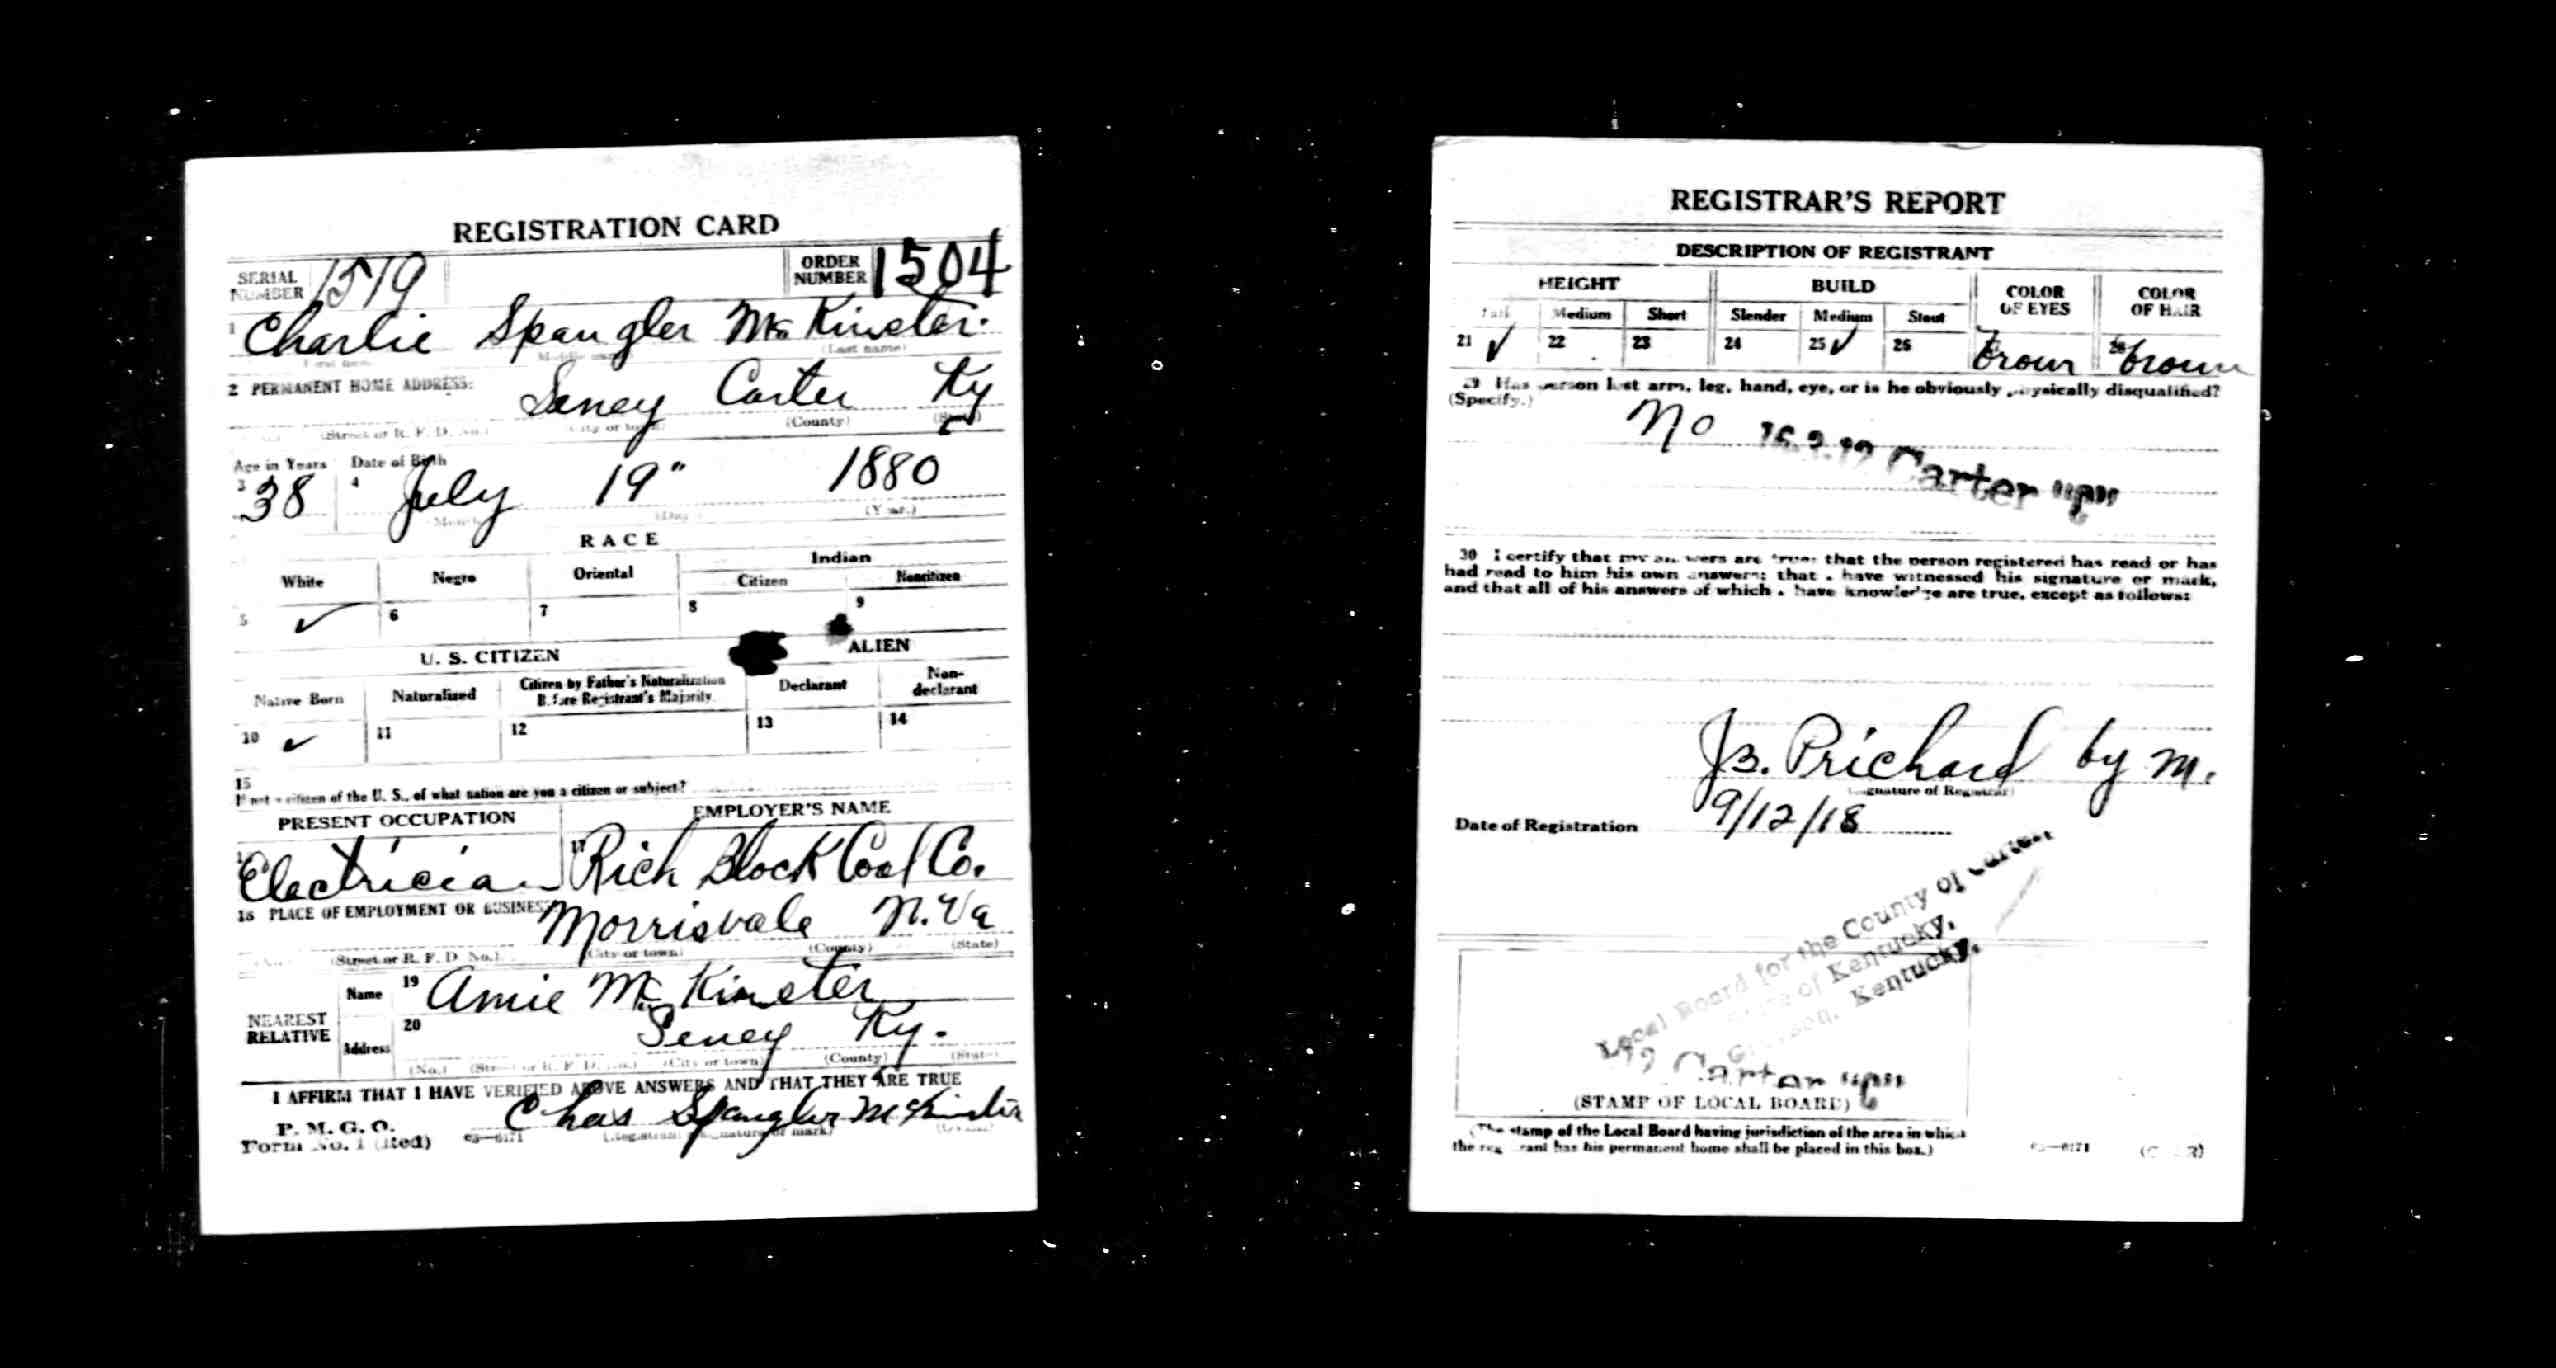 REGISTRATION CARD
SERIAL NUMBER 1519 ORDER NUMBER 1504
1 Charlie Spangler McKinster.
(Last name)
2 PERMANENT HOME ADDRESS:
Seney Carter Ky
(Street or R. F. D. No.) (City or town) (County) (State)
Age in Years Date of Birth
3 38 4 July 19" 1880
(Month) (Day) (Year.)
RACE
White Negro Oriental Indian
Citizen Noncitizen
5 ✓ 6 7 8 9
U. S. CITIZEN ALIEN
Native Born Naturalized Citizen by Father's Naturalization Before Registrant's Majority Declarant Non-declarant
10 ✓ 11 12 13 14
15
If not a citizen of the U. S., of what nation are you a citizen or subject?
PRESENT OCCUPATION EMPLOYER'S NAME
Electrician 17 Rich Block Coal Co.
18 PLACE OF EMPLOYMENT OR BUSINESS
Morrisvale W. Va
(Street or R. F. D. No.) (City or town) (County) (State)
NEAREST RELATIVE
Name 19 Amie McKinster
Address 20 Seney Ky.
(No.) (Street or R. F. D. No.) (City or town) (County) (State)
I AFFIRM THAT I HAVE VERIFIED ABOVE ANSWERS AND THAT THEY ARE TRUE
P. M. G. O.
Form No. 1 (Red) 03—6171 Chas Spangler McKinster
(Registrant's signature or mark)
REGISTRAR'S REPORT
DESCRIPTION OF REGISTRANT
HEIGHT BUILD COLOR OF EYES COLOR OF HAIR
Tall Medium Short Slender Medium Stout
21 ✓ 22 23 24 25 ✓ 26 brown 28 brown
29 Has person lost arm, leg, hand, eye, or is he obviously physically disqualified?
(Specify.)
No
Carter
30 I certify that my answers are true; that the person registered has read or has
had read to him his own answers; that I have witnessed his signature or mark,
and that all of his answers of which I have knowledge are true, except as follows:
JB. Prichard by M.
(Signature of Registrar)
Date of Registration 9/12/18
Local Board for the County of Carter
State of Kentucky,
Grayson, Kentucky.
Carter
(STAMP OF LOCAL BOARD)
(The stamp of the Local Board having jurisdiction of the area in which
the registrant has his permanent home shall be placed in this box.)
03—6171